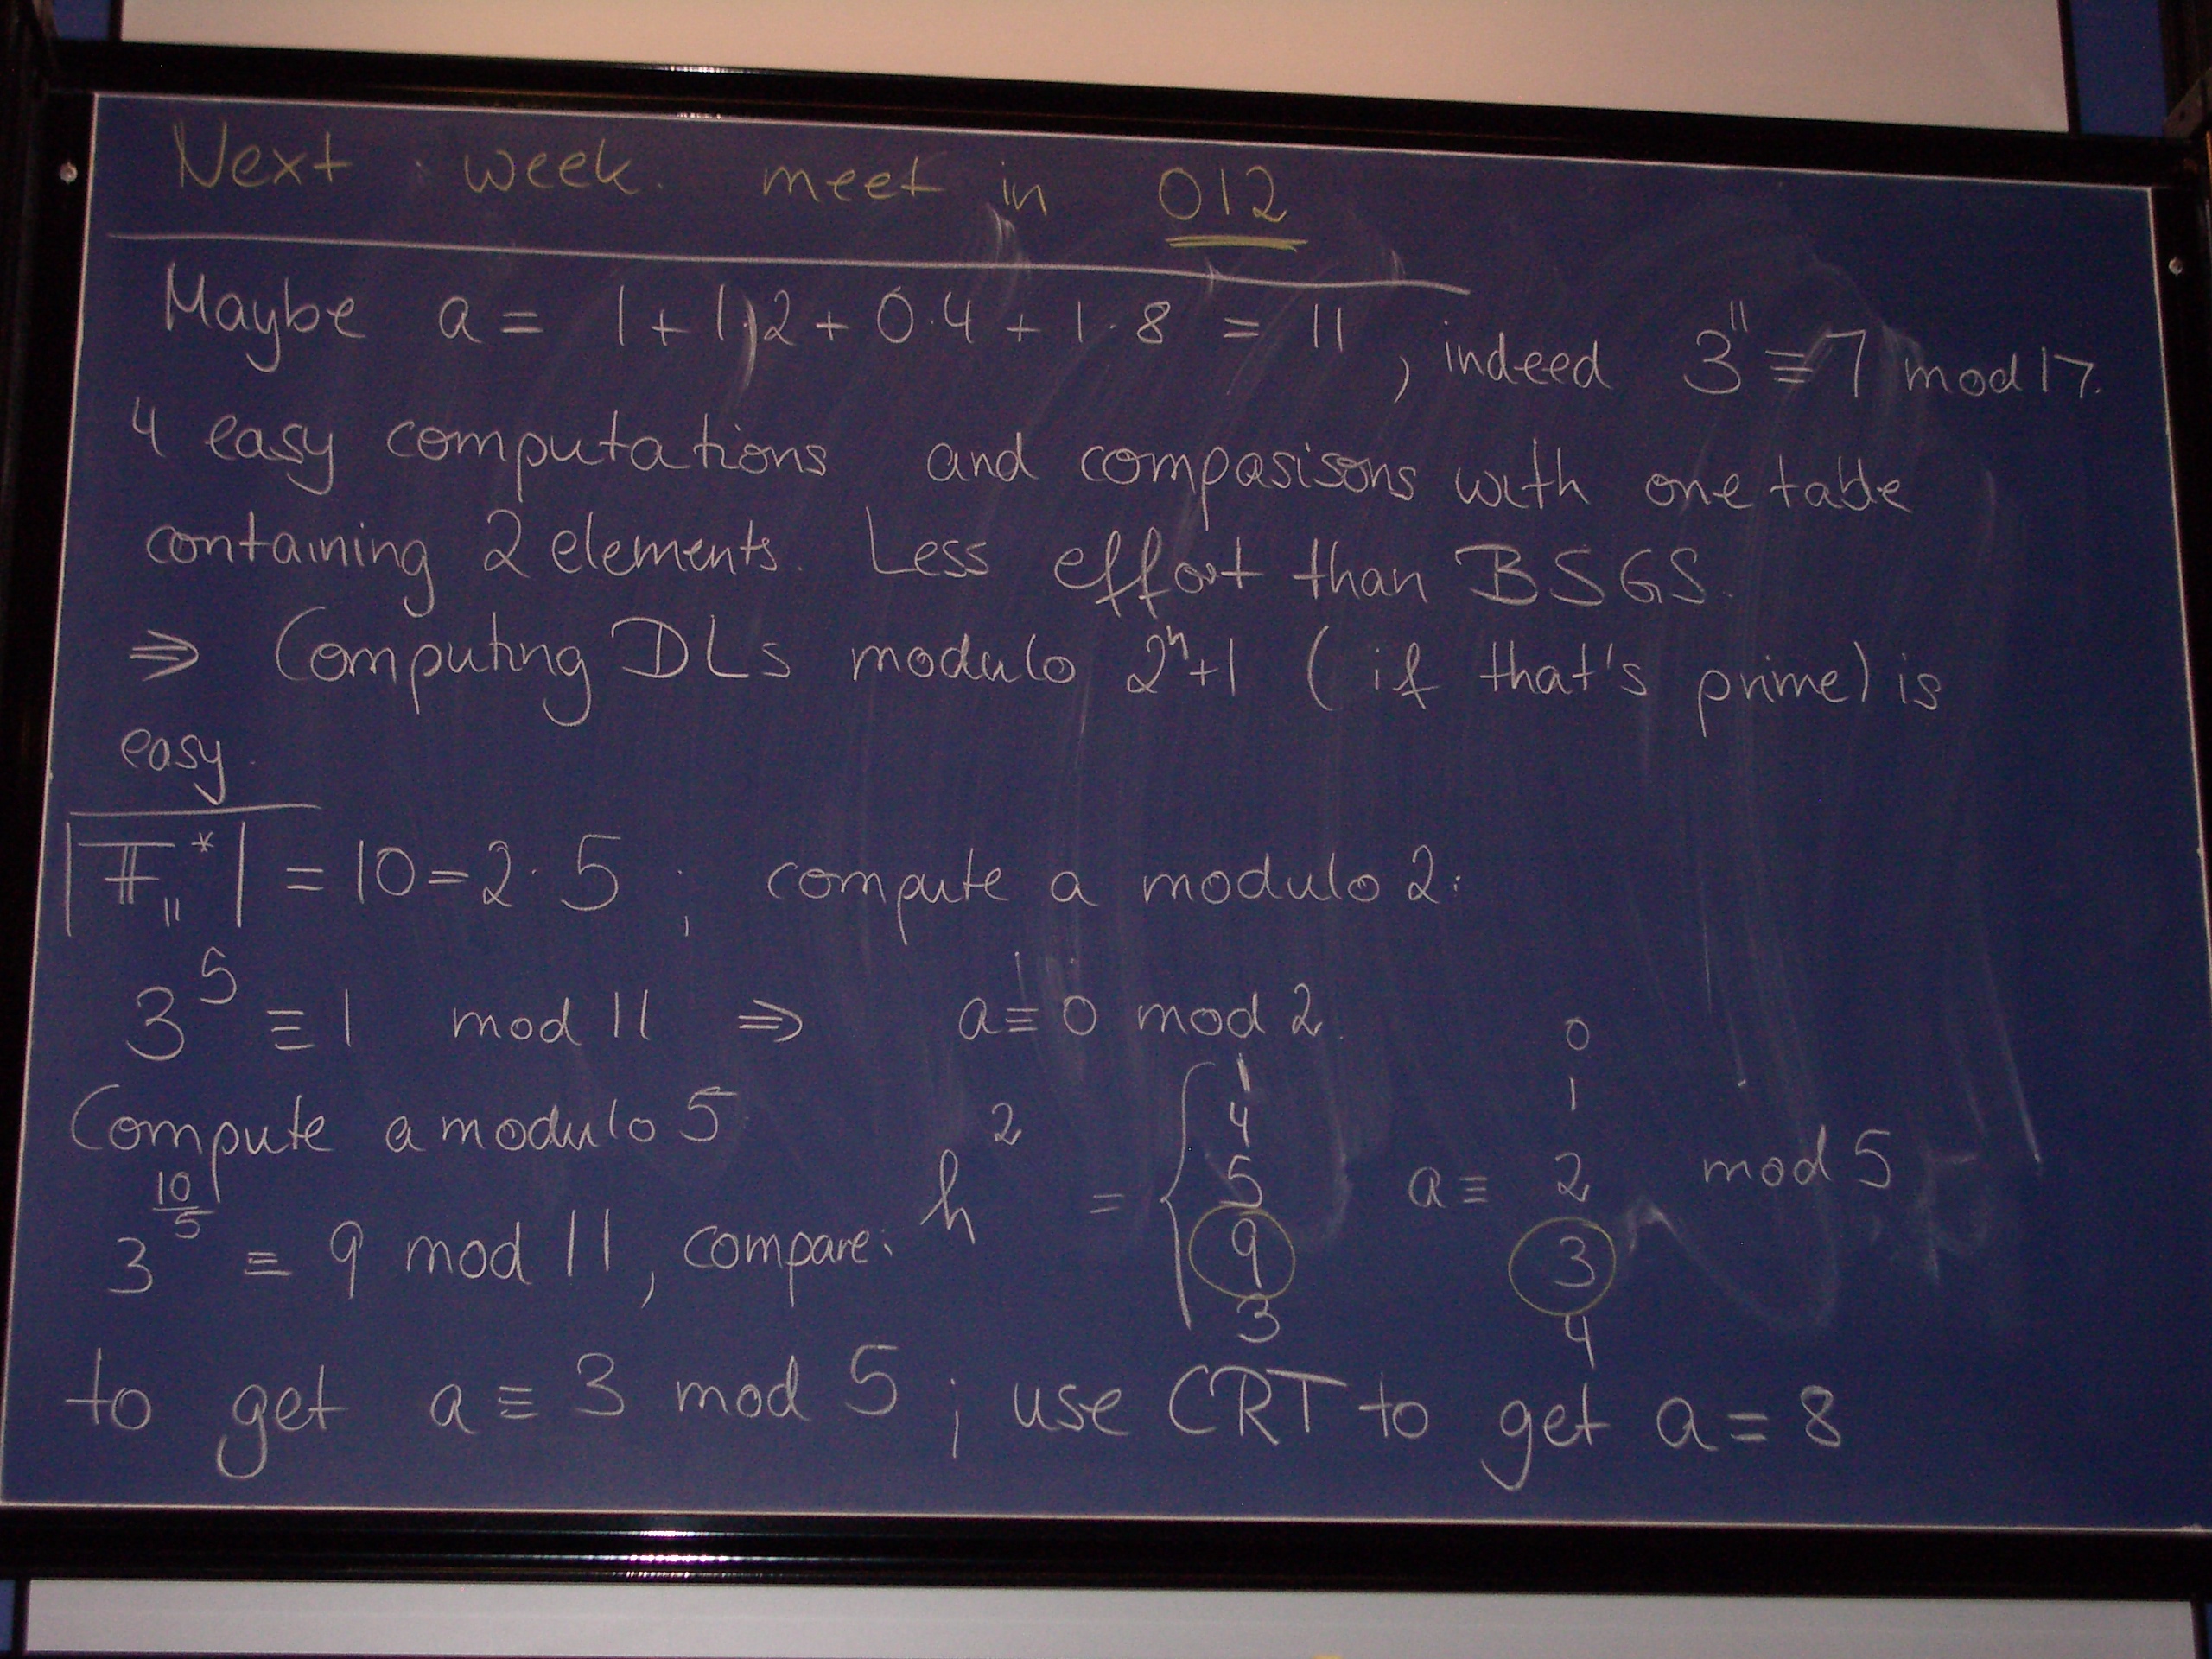 Next week meet in 012
Maybe a = 1 + 1·2 + 0·4 + 1·8 = 11, indeed 3¹¹ ≡ 7 mod 17.
4 easy computations and compasisons with one table
containing 2 elements. Less effort than BSGS.
⇒ Computing DLs modulo 2ⁿ+1 (if that's prime) is
easy
|𝔽₁₁*| = 10 = 2·5 ; compute a modulo 2:
3⁵ ≡ 1 mod 11 ⇒ a ≡ 0 mod 2.
Compute a modulo 5
3^(10/5) ≡ 9 mod 11, compare: h² = { 1 4 5 9 3 a ≡ 0 1 2 3 4 mod 5
to get a ≡ 3 mod 5 ; use CRT to get a = 8